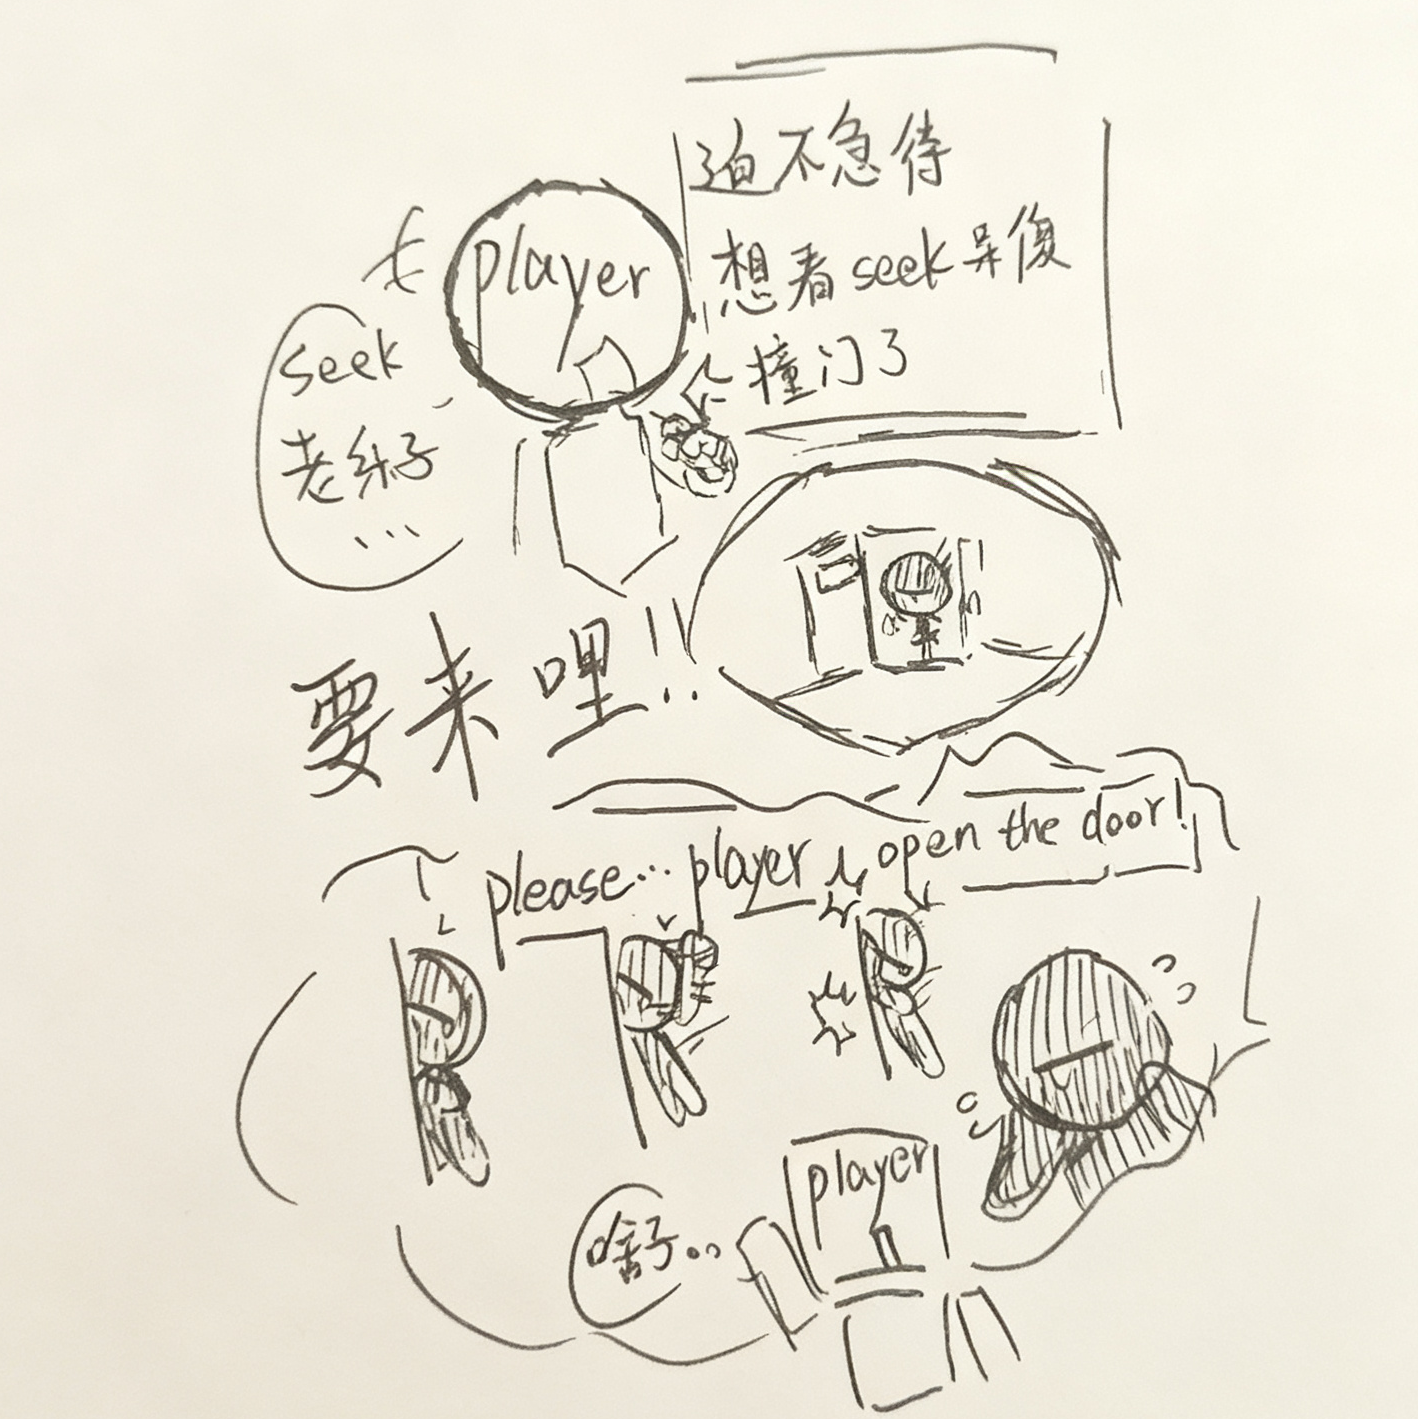 迫不急待
player
想看seek呆傻
撞门了
seek
老紨子
...
要来哩!!
please... player
open the door!
player
啥子..